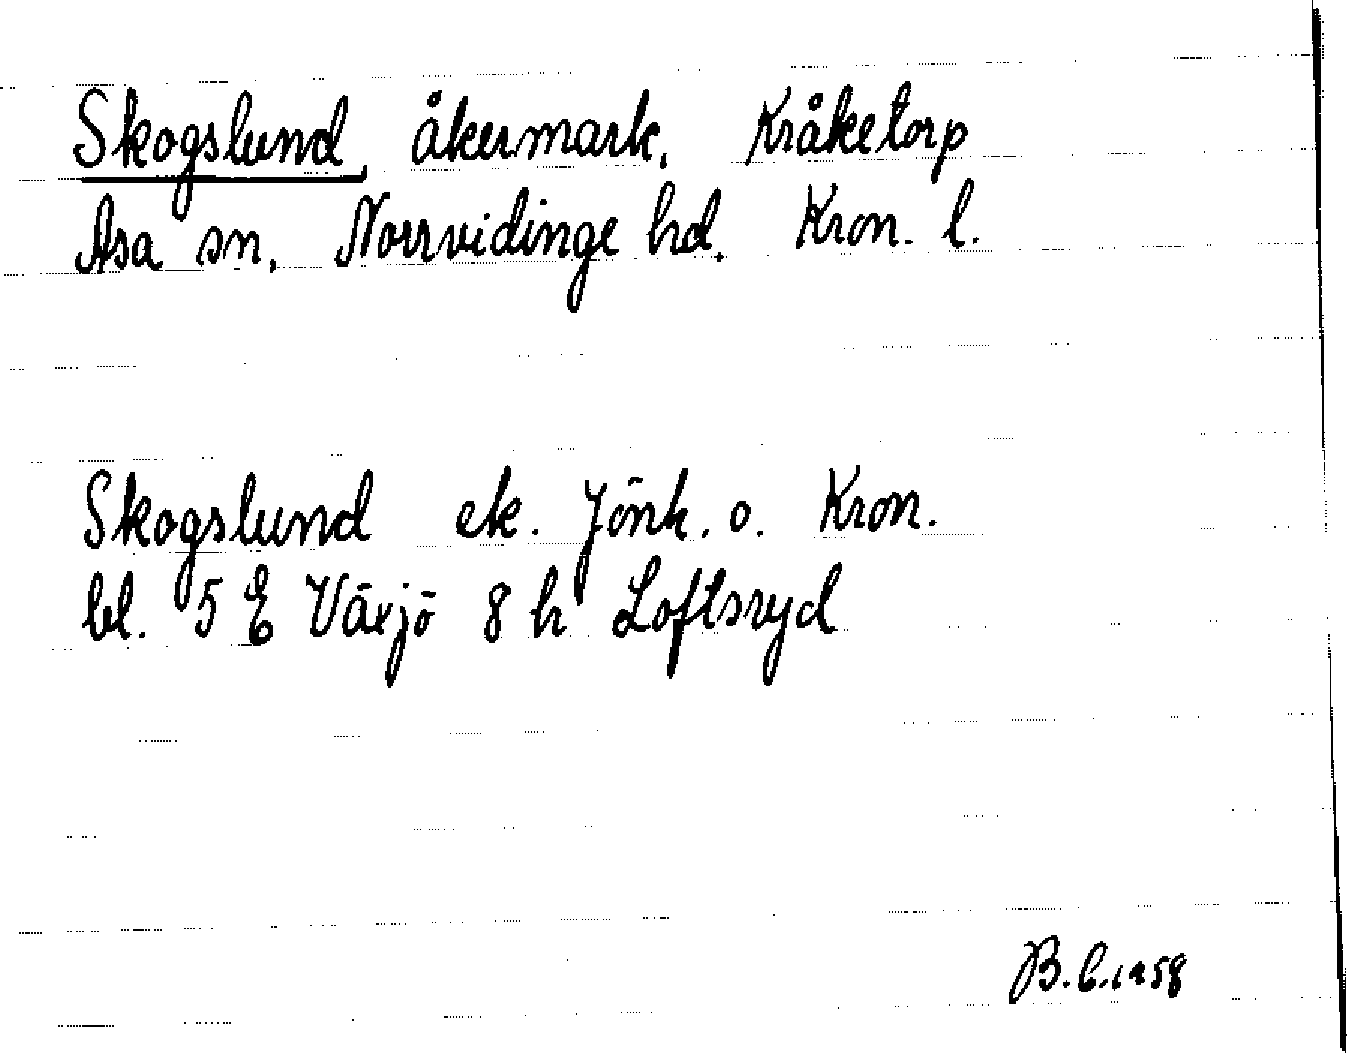 Skogslund, åkermark, Kråketorp
Asa sn, Norrvidinge hd, Kron. l.
Skogslund ek. Jönk. o. Kron.
bl. 5 E Växjö 8 h Loftsryd
B.C.1958